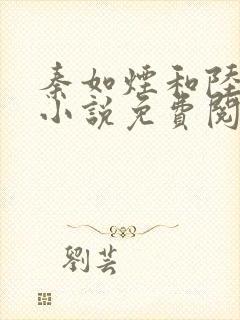 秦如煙和陸
小説免費閱
劉芸